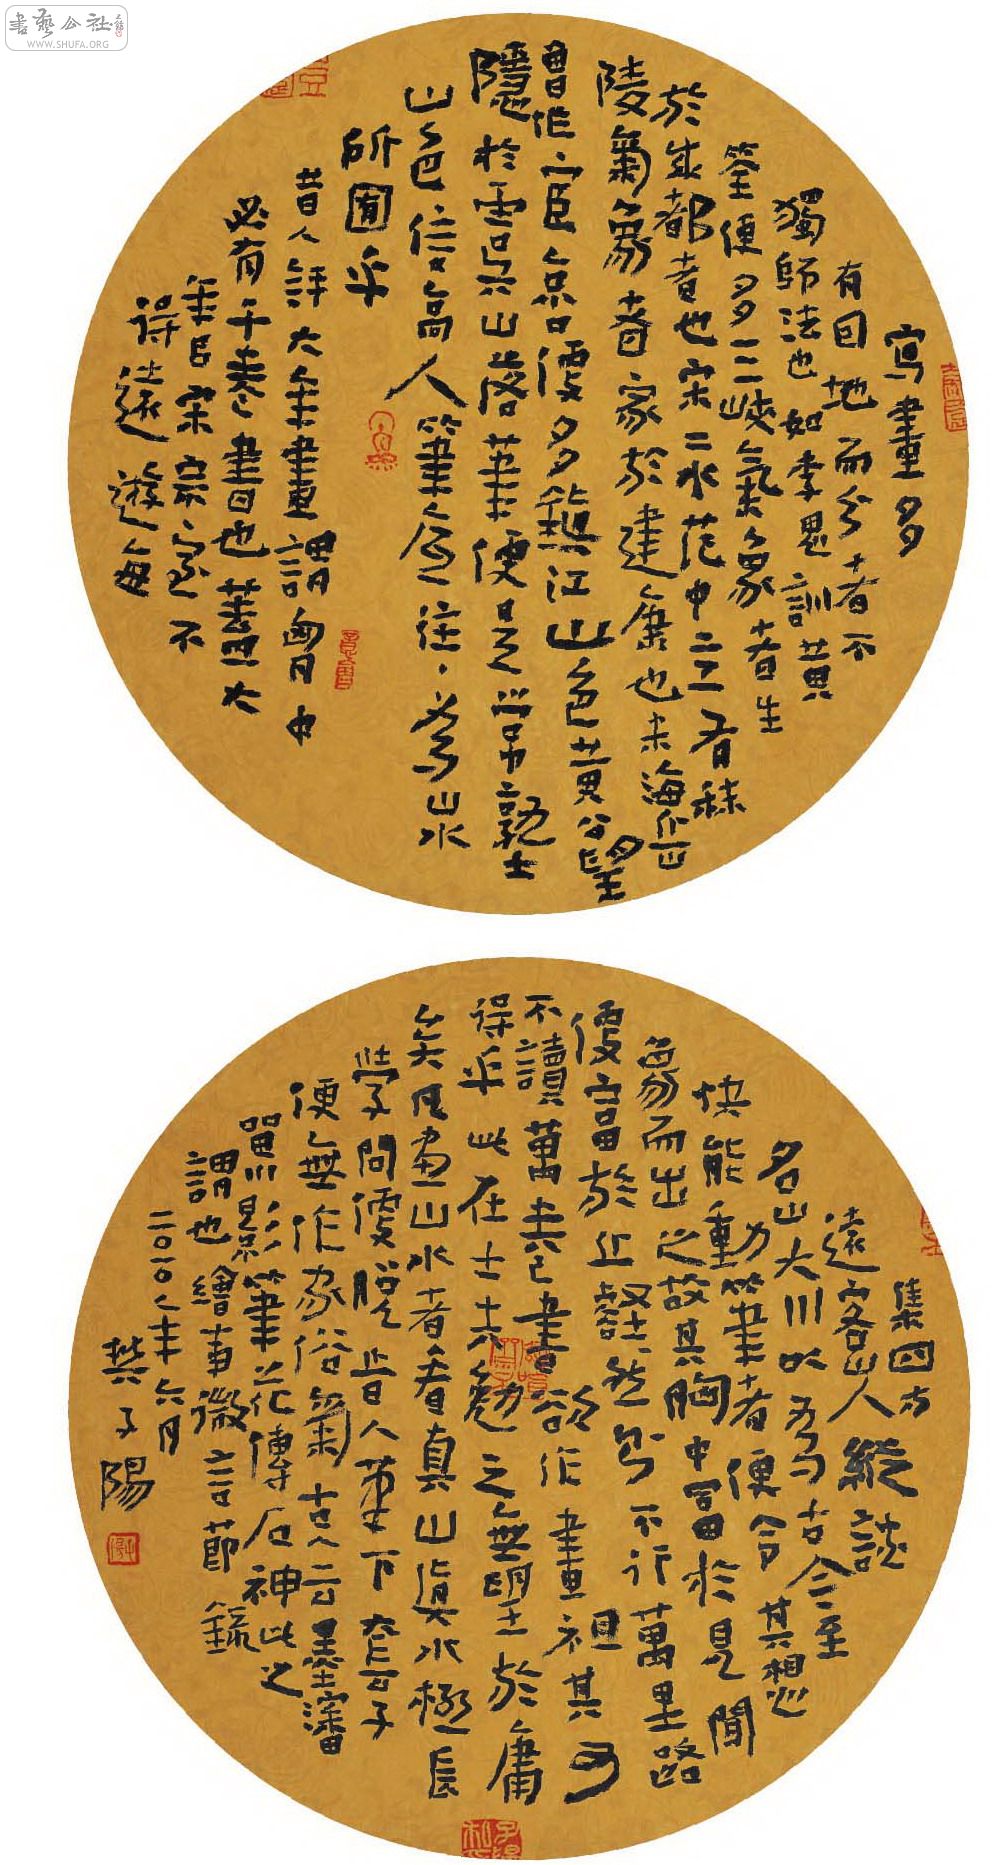 寫畫多
有因地而分者不
獨師法也如李思訓黃
筌便多三峽氣象者生
於成都者也宋二水范中立有秣
陵氣象者家於建康也米海岳
曾作宦京口便多鎮江山色黃公望
隱於虞山落筆便是常熟
山色信高人筆底往往為山水
所囿乎
昔人評大年畫謂胷中
必有千卷書也蓋大
年是宋宗室不
得遠遊每
集四方
遠客山人縱談
名山大川以為古今至
快能動筆者便令其想
象而出之故其胸中富於見聞
便富於丘壑然則不行萬里路
不讀萬卷書欲作畫祖其可
得乎此在士夫勉之無望於庸
矣凡畫山水者看真山真水極長
學問便脫時人筆下套子
便無作家俗氣古人云墨瀋
留川影筆花傳石神此之
謂也繪事微言節錄
二〇一〇年六月
樊子陽
書藝公社
WWW.SHUFA.ORG